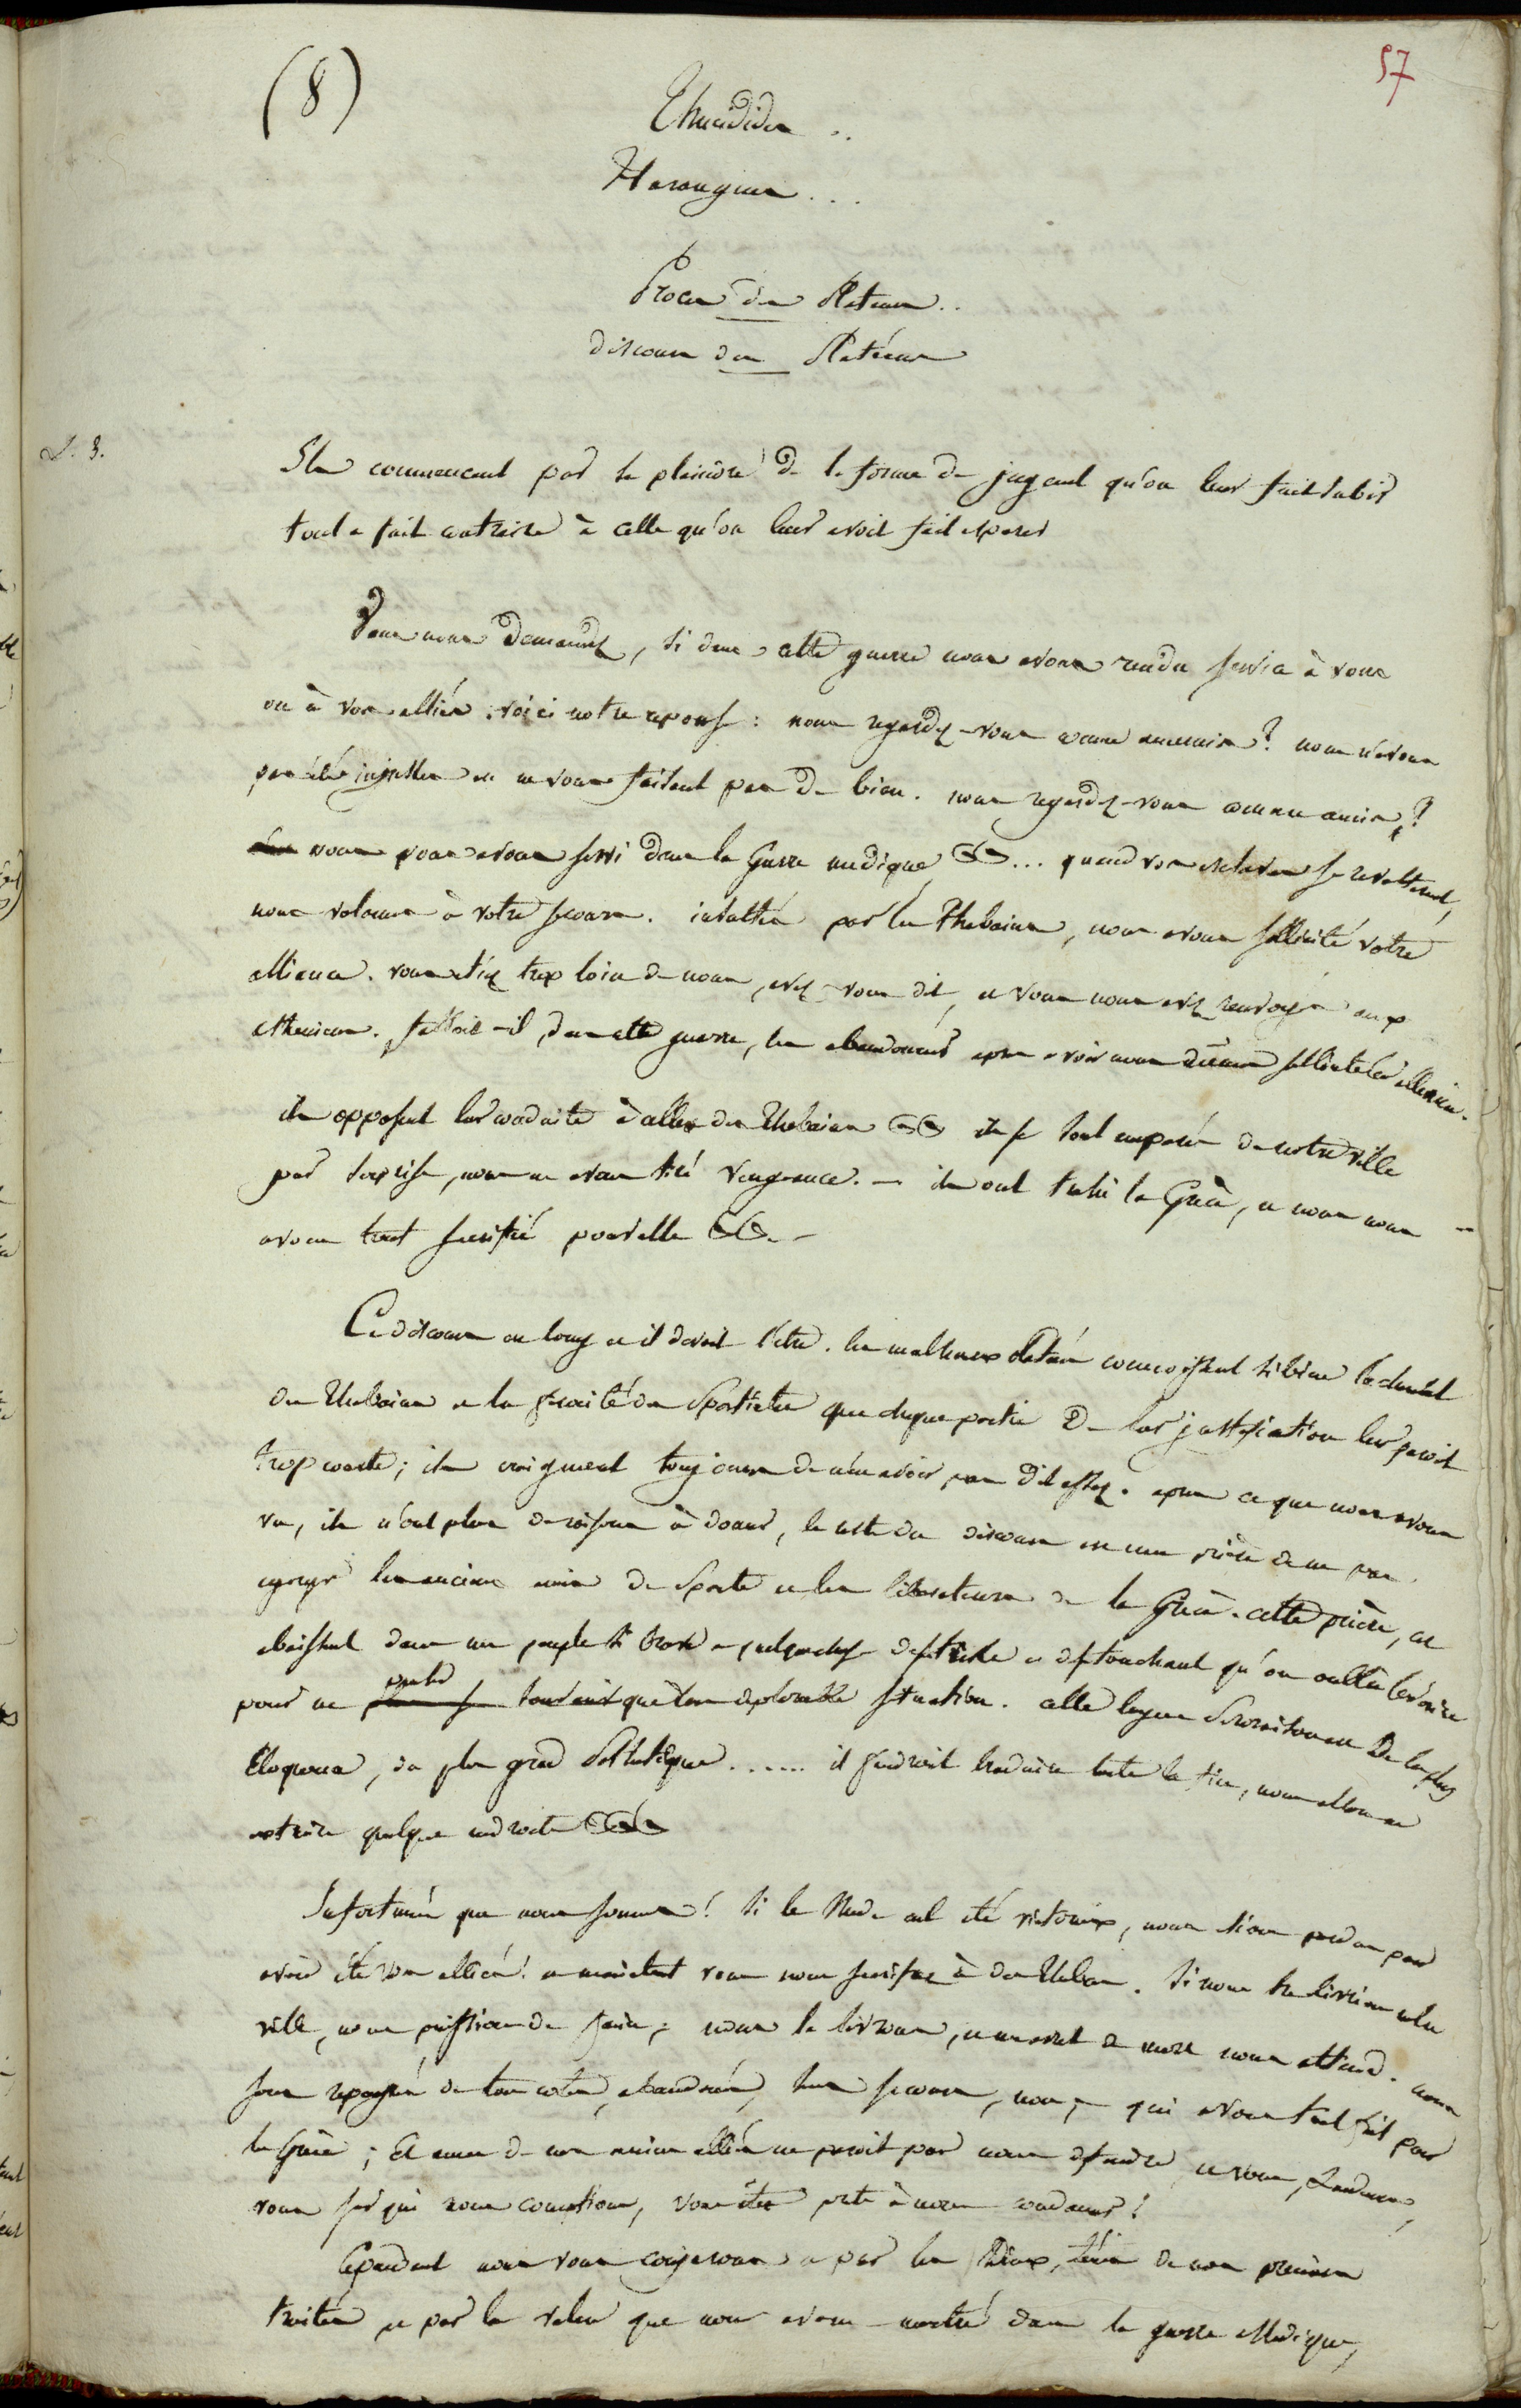 (8)
57
Thucidides ..
Harangues ...
Procès des Platéens ..
discours des Platéens
L. 3.
Ils commencent par se plaindre de la forme de jugement qu'on leur fait subir
tout a fait contraire à celle qu'on leur avoit fait esperer
Vous nous demandez, si dans cette guerre nous avons rendu service à vous
ou à vos alliés. voici notre reponse : nous regardez-vous comme ennemis ? nous n'avons
pas été injustes en ne vous faisant pas de bien. nous regardez-vous comme amis ?
nous vous avons servi dans la Guerre medique ... quand vos esclaves se revoltèrent,
nous volames à votre secours. insultés par les Thebains, nous avons sollicité votre
alliance. vous etiez trop loin de nous, avez-vous dit, et vous nous avez renvoyés aux
atheniens. falloit-il, dans cette guerre, les abandonner après avoir nous mêmes sollicité leur alliance.
ils opposent leur conduite à celle des Thebains ils se sont emparés de notre ville
par surprise, nous en avons tiré vengeance. — ils ont trahi la Grèce, et nous nous —
avons tout sacrifié pour elle
Ce discours est long et il devoit l'être. les malheureux Platéens connoissent si bien
des Thebains et la ferocité des Spartiates que chaque partie de leur justification leur paroit
trop courte ; ils craignent toujours de n'en avoir pas dit assez. après ce que nous avons
vu, ils n'ont plus de raisons à donner, le reste du discours est une prière de ne pas
egorger les anciens amis de Sparte et les liberateurs de la Grèce. cette prière, cet
abaissement dans un peuple si brave a quelque chose de si triste et de si touchant qu'on oublie
pour ne penser qu'à leur deplorable situation. cette longue est de la plus
éloquence, du plus grand pathétique ...... il faudroit traduire toute la fin, nous allons en
extraire quelques endroits
Infortunés que nous sommes ! si le Mede eut eté victorieux, nous etions perdus pour
avoir été vos alliés ! et maintenant vous nous sacrifiez à des Thebains. si nous ne livrions notre
ville, nous perissions de faim ; nous la livrons, et une mort nous attend. nous
sommes repoussés de tous cotés, abandonnés, sans secours, nous, qui avons tant fait pour
la Grèce ; Et aucun de nos anciens alliés ne paroit pour nous defendre et vous,
vous sur qui nous comptions, vous êtes prets à nous condamner !
Cependant nous vous conjurons et par les Dieux, de nos premiers
traités et par la valeur que nous avons montré dans la guerre Medique,